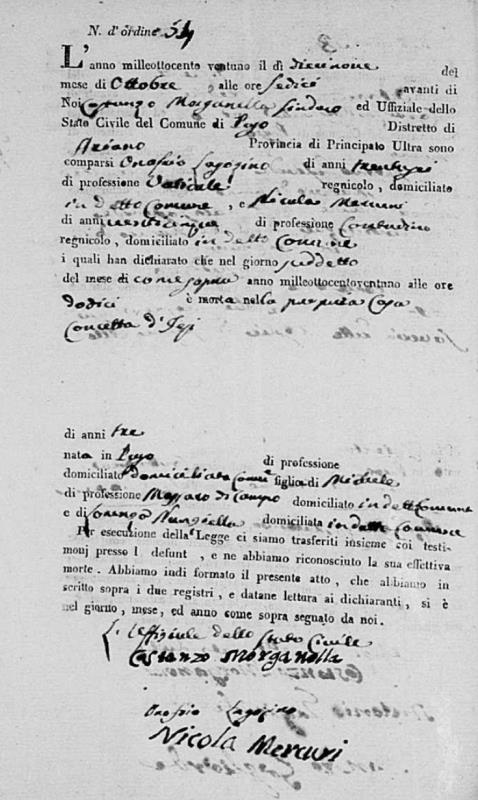 N. d'ordine 54
L'anno milleottocento ventuno il dì diecinove del
mese di Ottobre alle ore sedici avanti di
Noi Costanzo Morganella Sindaco ed Uffiziale dello
Stato Civile del Comune di Distretto di
Ariano Provincia di Principato Ultra sono
comparsi Onofrio Lagozino di anni
di professione Vaticale regnicolo, domiciliato
in detto Comune, e Nicola Mercuri
di anni venticinque di professione Contadino
regnicolo, domiciliato in detto Comune
i quali han dichiarato che nel giorno suddetto
del mese di come sopra anno milleottocentoventuno alle ore
dodici è morta nella propria Casa
Concetta
di anni tre
nata in di professione
domiciliato domiciliata figlia di Michele
di professione Massaro di Campo domiciliato in dett Comune
e di domiciliata in detto Comune
Per esecuzione della Legge ci siamo trasferiti insieme coi testi-
monj presso l defunt , e ne abbiamo riconosciuto la sua effettiva
morte. Abbiamo indi formato il presente atto, che abbiamo in-
scritto sopra i due registri, e datane lettura ai dichiaranti, si è
nel giorno, mese, ed anno come sopra segnato da noi.
L'Uffiziale dello Stato Civile
Costanzo Morganella
Onofrio Lagozino
Nicola Mercuri